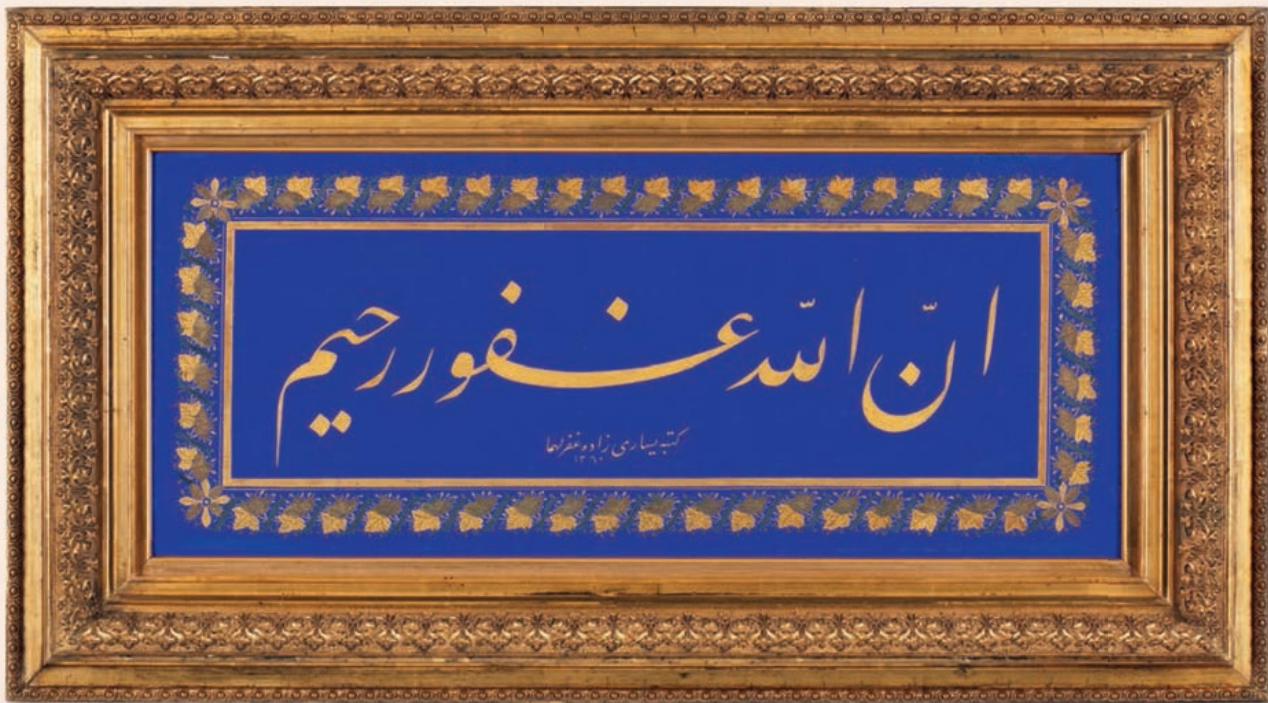 انّ اللّه غفور رحيم
كتبه يساری زاده غفر لهما